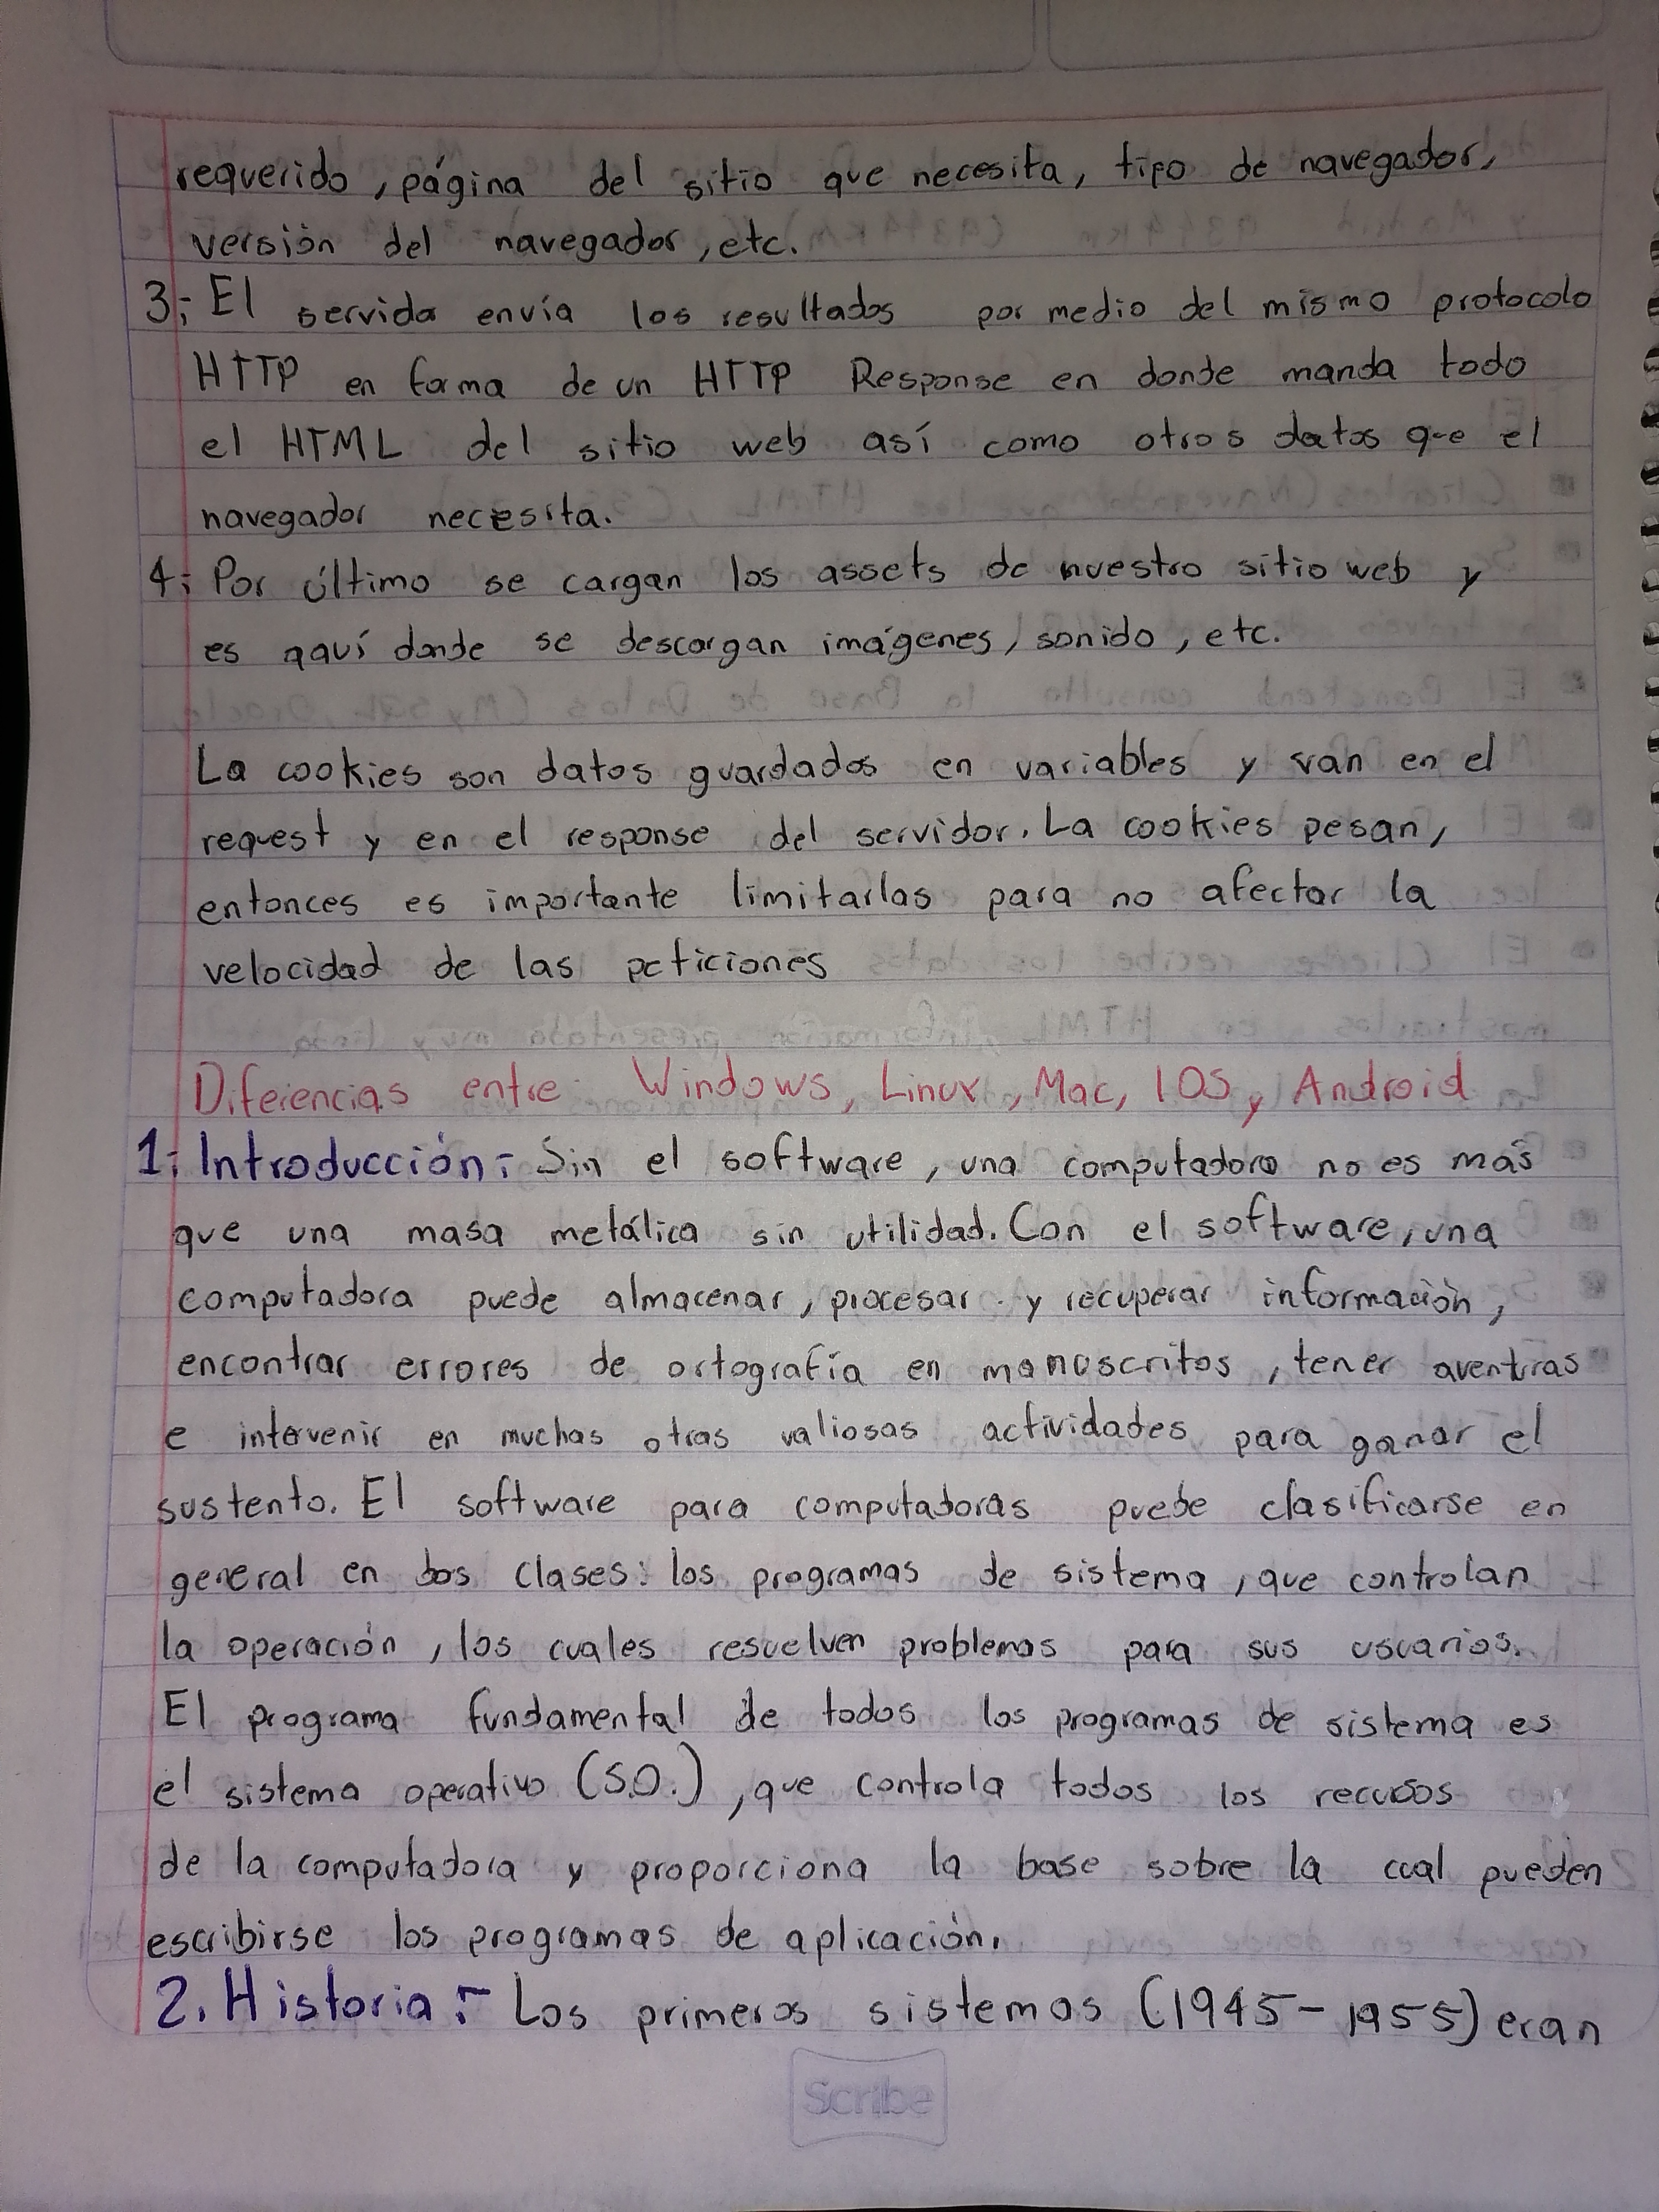 requerido, página del sitio que necesita, tipo de navegador,
versión del navegador, etc.
3; El servidor envía los resultados por medio del mismo protocolo
HTTP en forma de un HTTP Response en donde manda todo
el HTML del sitio web así como otros datos que el
navegador necesita.
4; Por último se cargan los assets de nuestro sitio web y
es aquí donde se descargan imágenes, sonido, etc.
La cookies son datos guardados en variables y van en el
request y en el response del servidor. La cookies pesan,
entonces es importante limitarlas para no afectar la
velocidad de las peticiones
Diferencias entre Windows, Linux, Mac, IOS y Android
1; Introducción:- Sin el software, una computadora no es más
que una masa metálica sin utilidad. Con el software, una
computadora puede almacenar, procesar y recuperar información,
encontrar errores de ortografía en manuscritos, tener aventuras
e intervenir en muchas otras valiosas actividades para ganar el
sustento. El software para computadoras puede clasificarse en
general en dos clases: los programas de sistema, que controlan
la operación, los cuales resuelven problemas para sus usuarios.
El programa fundamental de todos los programas de sistema es
el sistema operativo (S.O.), que controla todos los recursos
de la computadora y proporciona la base sobre la cual pueden
escribirse los programas de aplicación.
2. Historia:- Los primeros sistemas (1945-1955) eran
Scribe